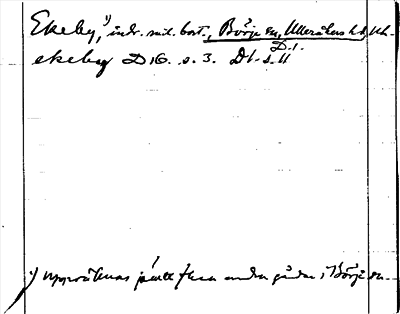 Ekeby,¹⁾ indr. mil. bost., Börje sn, Ulleråkers hd, Uh.
D. 1.
ekeby D16. s. 3. D1. s. 11
¹⁾ uppräknas jämte flera andra gårdar i Börje sn.